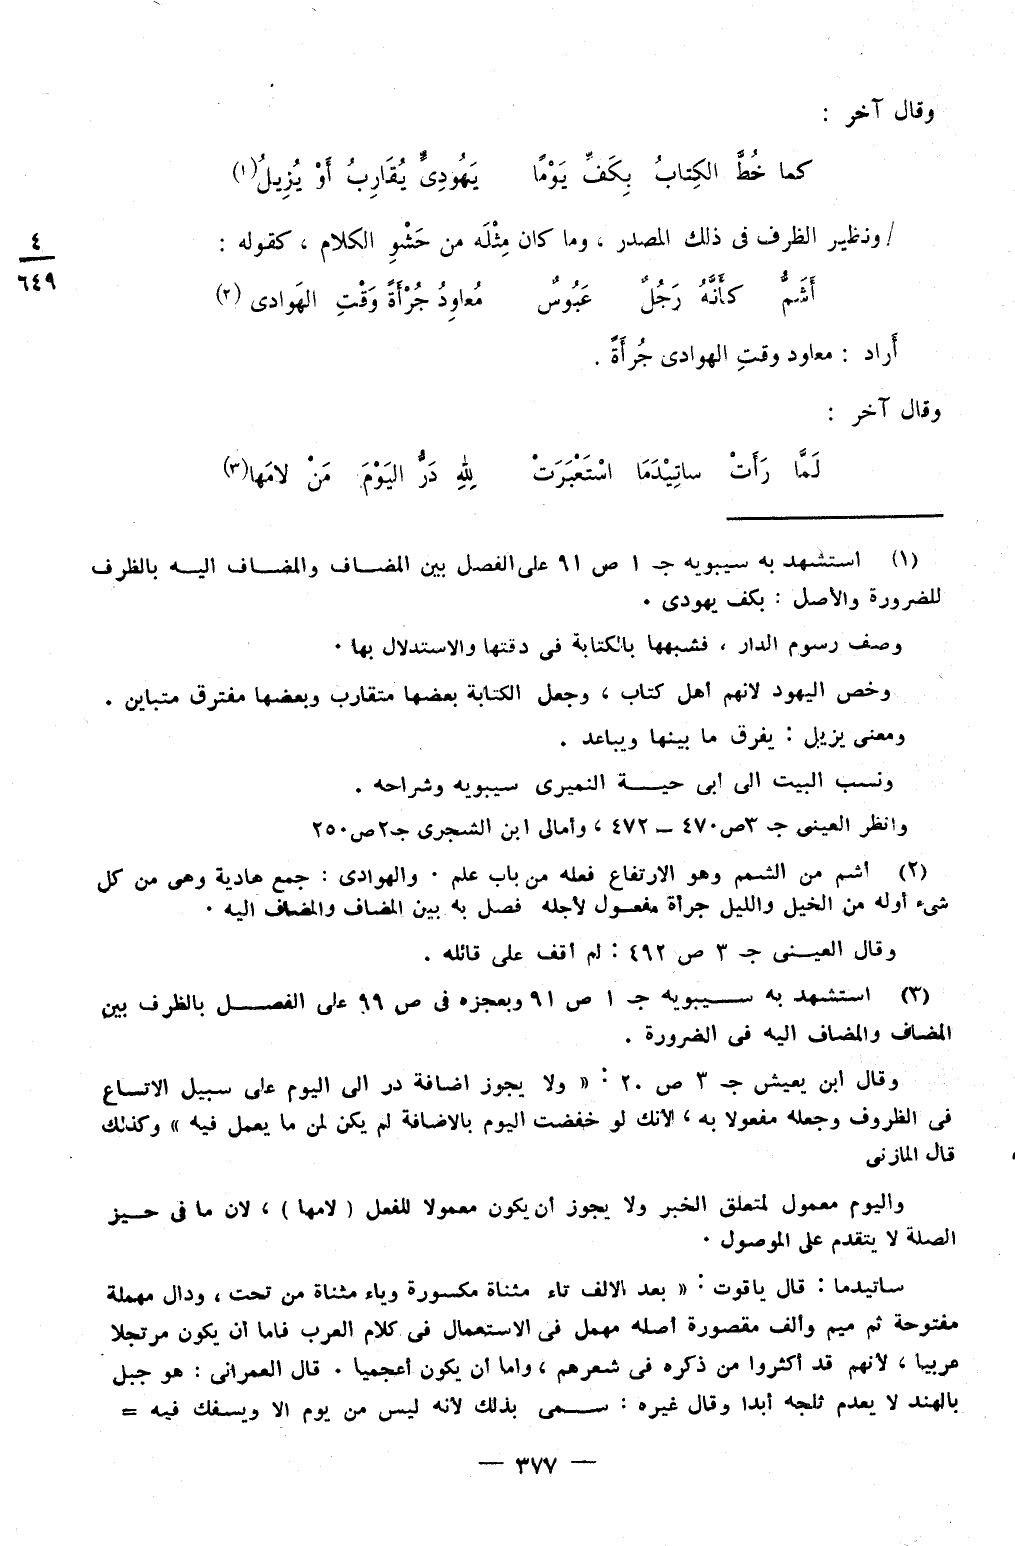 وقال آخر :
كما خُطَّ الكِتابُ بِكَفِّ يَوْمًا يَهُودِىٍّ يُقَارِبُ أَوْ يُزِيلُ(١)
/ ونظير الظرف فى ذلك المصدر ، وما كان مِثْلَه من حَشْوِ الكلام ، كقوله :
٤
٦٤٩
أَشَمُّ كأَنَّهُ رَجُلٌ عَبُوسٌ مُعاوِدُ جُرْأَةً وَقْتِ الهَوادى (٢)
أَراد : معاود وقتِ الهوادى جُرأَةً .
وقال آخر :
لَمَّا رَأَتْ ساتِيْدَمَا اسْتَعْبَرَتْ لِلهِ دَرُّ اليَوْمَ مَنْ لامَها(٣)
(١) استشهد به سيبويه جـ ١ ص ٩١ على الفصل بين المضاف والمضاف اليه بالظرف
للضرورة والأصل : بكف يهودى .
وصف رسوم الدار ، فشبهها بالكتابة فى دقتها والاستدلال بها .
وخص اليهود لانهم أهل كتاب ، وجعل الكتابة بعضها متقارب وبعضها مفترق متباين .
ومعنى يزيل : يفرق ما بينها ويباعد .
ونسب البيت الى أبى حية النميرى سيبويه وشراحه .
وانظر العينى جـ ٣ص٤٧٠ – ٤٧٢ ، وأمالى ابن الشجرى جـ٢ص٢٥٠
(٢) أشم من الشمم وهو الارتفاع فعله من باب علم . والهوادى : جمع هادية وهى من كل
شىء أوله من الخيل والليل جرأة مفعول لأجله فصل به بين المضاف والمضاف اليه .
وقال العينى جـ ٣ ص ٤٩٢ : لم أقف على قائله .
(٣) استشهد به سيبويه جـ ١ ص ٩١ وبعجزه فى ص ٩٩ على الفصل بالظرف بين
المضاف والمضاف اليه فى الضرورة .
وقال ابن يعيش جـ ٣ ص ٢٠ : « ولا يجوز اضافة در الى اليوم على سبيل الاتساع
فى الظروف وجعله مفعولا به ، لأنك لو خفضت اليوم بالاضافة لم يكن لمن ما يعمل فيه » وكذلك
قال المازنى
واليوم معمول لمتعلق الخبر ولا يجوز أن يكون معمولا للفعل ( لامها ) ، لان ما فى حيز
الصلة لا يتقدم على الموصول .
ساتيدما : قال ياقوت : « بعد الالف تاء مثناة مكسورة وياء مثناة من تحت ، ودال مهملة
مفتوحة ثم ميم وألف مقصورة أصله مهمل فى الاستعمال فى كلام العرب فاما أن يكون مرتجلا
عربيا ، لأنهم قد أكثروا من ذكره فى شعرهم ، واما أن يكون أعجميا . قال العمرانى : هو جبل
بالهند لا يعدم ثلجه أبدا وقال غيره : سمى بذلك لأنه ليس من يوم الا ويسفك فيه =
— ٣٧٧ —